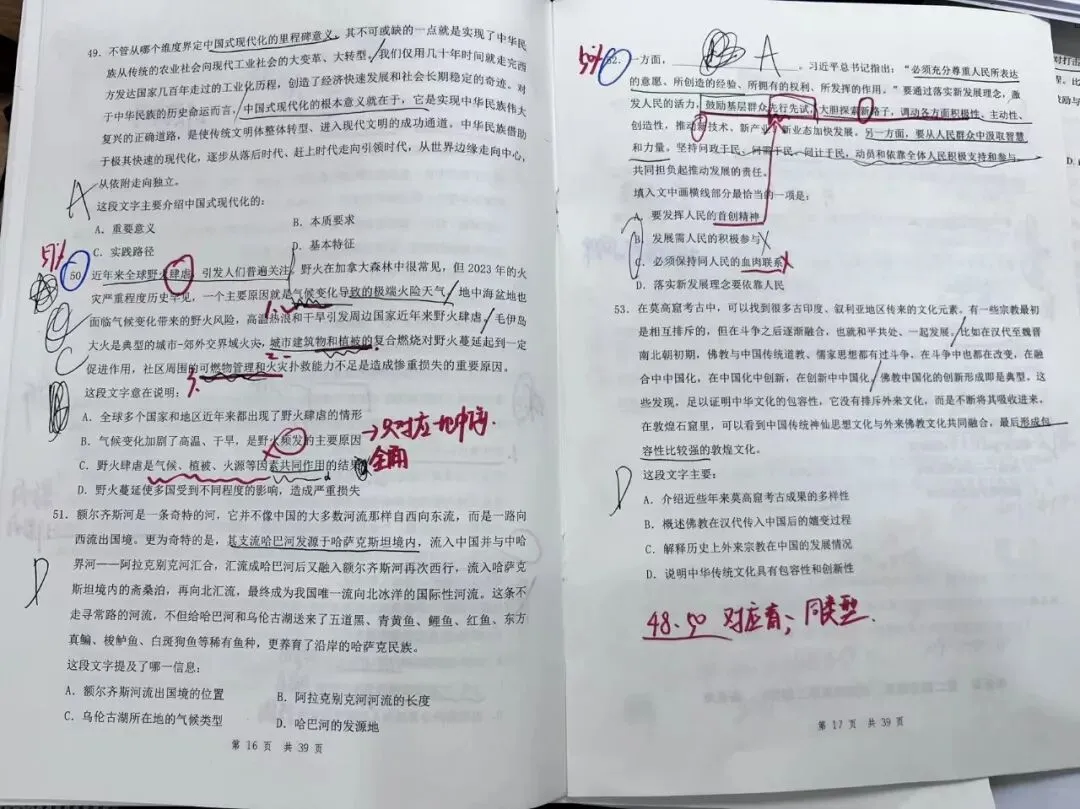 49. 不管从哪个维度界定中国式现代化的里程碑意义，其不可或缺的一点就是实现了中华民
族从传统的农业社会向现代工业社会的大变革、大转型。我们仅用几十年时间就走完西
方发达国家几百年走过的工业化历程，创造了经济快速发展和社会长期稳定的奇迹。对
于中华民族的历史命运而言，中国式现代化的根本意义就在于，它是实现中华民族伟大
复兴的正确道路，是使传统文明体整体转型、进入现代文明的成功通道。中华民族借助
于极其快速的现代化，逐步从落后时代、赶上时代走向引领时代，从世界边缘走向中心，
从依附走向独立。
A
这段文字主要介绍中国式现代化的：
A．重要意义 B．本质要求
C．实践路径 D．基本特征
50. 近年来全球野火肆虐，引发人们普遍关注。野火在加拿大森林中很常见，但 2023 年的火
灾严重程度历史罕见，一个主要原因就是气候变化导致的极端火险天气。地中海盆地也
面临气候变化带来的野火风险，高温热浪和干旱引发周边国家近年来野火肆虐。毛伊岛
大火是典型的城市-郊外交界域火灾，城市建筑物和植被的复合燃烧对野火蔓延起到一定
促进作用，社区周围的可燃物管理和火灾扑救能力不足是造成惨重损失的重要原因。
C
1.
2.
3.
这段文字意在说明：
A．全球多个国家和地区近年来都出现了野火肆虐的情形
B．气候变化加剧了高温、干旱，是野火频发的主要原因
→只对应地中海.
C．野火肆虐是气候、植被、火源等因素共同作用的结果
全面
D．野火蔓延使多国受到不同程度的影响，造成严重损失
51. 额尔齐斯河是一条奇特的河，它并不像中国的大多数河流那样自西向东流，而是一路向
西流出国境。更为奇特的是，其支流哈巴河发源于哈萨克斯坦境内，流入中国并与中哈
界河——阿拉克别克河汇合，汇流成哈巴河后又融入额尔齐斯河再次西行，流入哈萨克
斯坦境内的斋桑泊，再向北汇流，最终成为我国唯一流向北冰洋的国际性河流。这条不
走寻常路的河流，不但给哈巴河和乌伦古湖送来了五道黑、青黄鱼、鲤鱼、红鱼、东方
真鳊、梭鲈鱼、白斑狗鱼等稀有鱼种，更养育了沿岸的哈萨克民族。
D
这段文字提及了哪一信息：
A．额尔齐斯河流出国境的位置 B．阿拉克别克河河流的长度
C．乌伦古湖所在地的气候类型 D．哈巴河的发源地
第 16 页 共 39 页
52. 一方面，____。习近平总书记指出：“必须充分尊重人民所表达
A
的意愿、所创造的经验、所拥有的权利、所发挥的作用。”要通过落实新发展理念，激
发人民的活力，鼓励基层群众先行先试、大胆探索新路子，调动各方面积极性、主动性、
创造性，推动新技术、新产业、新业态加快发展。另一方面，要从人民群众中汲取智慧
和力量，坚持问政于民、问需于民、问计于民，动员和依靠全体人民积极支持和参与，
共同担负起推动发展的责任。
填入文中画横线部分最恰当的一项是：
A．要发挥人民的首创精神
B．发展需人民的积极参与
C．必须保持同人民的血肉联系
D．落实新发展理念要依靠人民
53. 在莫高窟考古中，可以找到很多古印度、叙利亚地区传来的文化元素。有一些宗教最初
是相互排斥的，但在斗争之后逐渐融合，也就和平共处、一起发展。比如在汉代至魏晋
南北朝初期，佛教与中国传统道教、儒家思想都有过斗争，在斗争中也都在改变，在融
合中中国化，在中国化中创新，在创新中中国化，佛教中国化的创新形成即是典型。这
些发现，足以证明中华文化的包容性，它没有排斥外来文化，而是不断将其吸收进来，
在敦煌石窟里，可以看到中国传统神仙思想文化与外来佛教文化共同融合，最后形成包
容性比较强的敦煌文化。
D
这段文字主要：
A．介绍近些年来莫高窟考古成果的多样性
B．概述佛教在汉代传入中国后的嬗变过程
C．解释历史上外来宗教在中国的发展情况
D．说明中华传统文化具有包容性和创新性
48. 50 对应看；同类型.
第 17 页 共 39 页